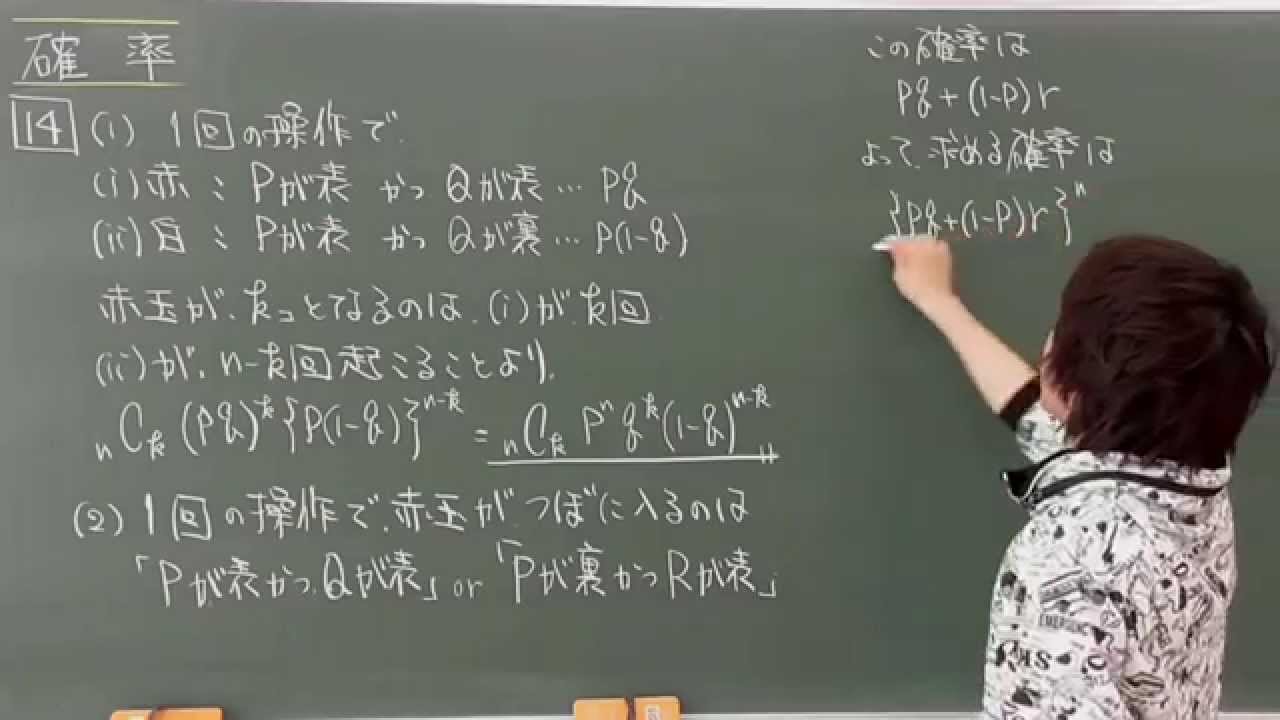 確 率
14 (1) 1回の操作で.
(i) 赤 : Pが表 かつ Qが表 … pq
(ii) 白 : Pが表 かつ Qが裏 … p(1-q)
赤玉が、k コとなるのは、(i)が、k回
(ii)が、n-k回起こることより、
nCk (pq)^k {p(1-q)}^{n-k} = nCk p^n q^k (1-q)^{n-k}
(2) 1回の操作で、赤玉が、つぼに入るのは
「Pが表かつ、Qが表」or「Pが裏かつRが表」
この確率は
pq + (1-p)r
よって、求める確率は
{pq+(1-p)r}^n
EMERGENC
SK